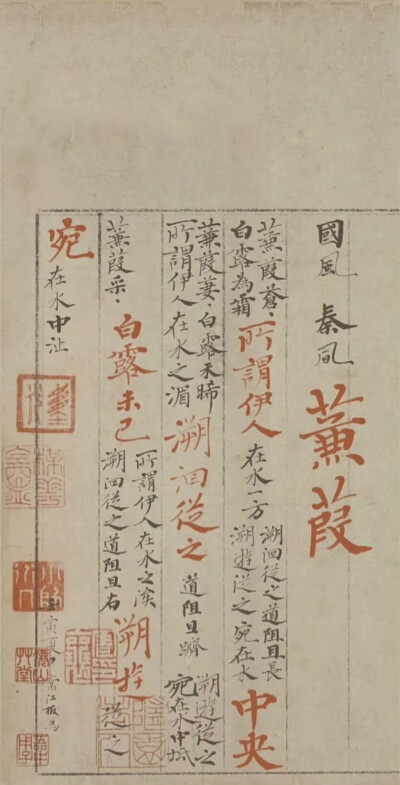 國風 秦風 蒹葭
蒹葭蒼、
白露為霜
所謂伊人
在水一方
溯洄從之道阻且長
溯遊從之宛在水
中央
蒹葭萋、白露未晞
所謂伊人在水之湄
溯洄從之
道阻且躋
溯遊從之
宛在水中坻
蒹葭采、
白露未已
所謂伊人在水之涘
溯洄從之道阻且右
溯遊
從之
宛
在水中沚
寅夏